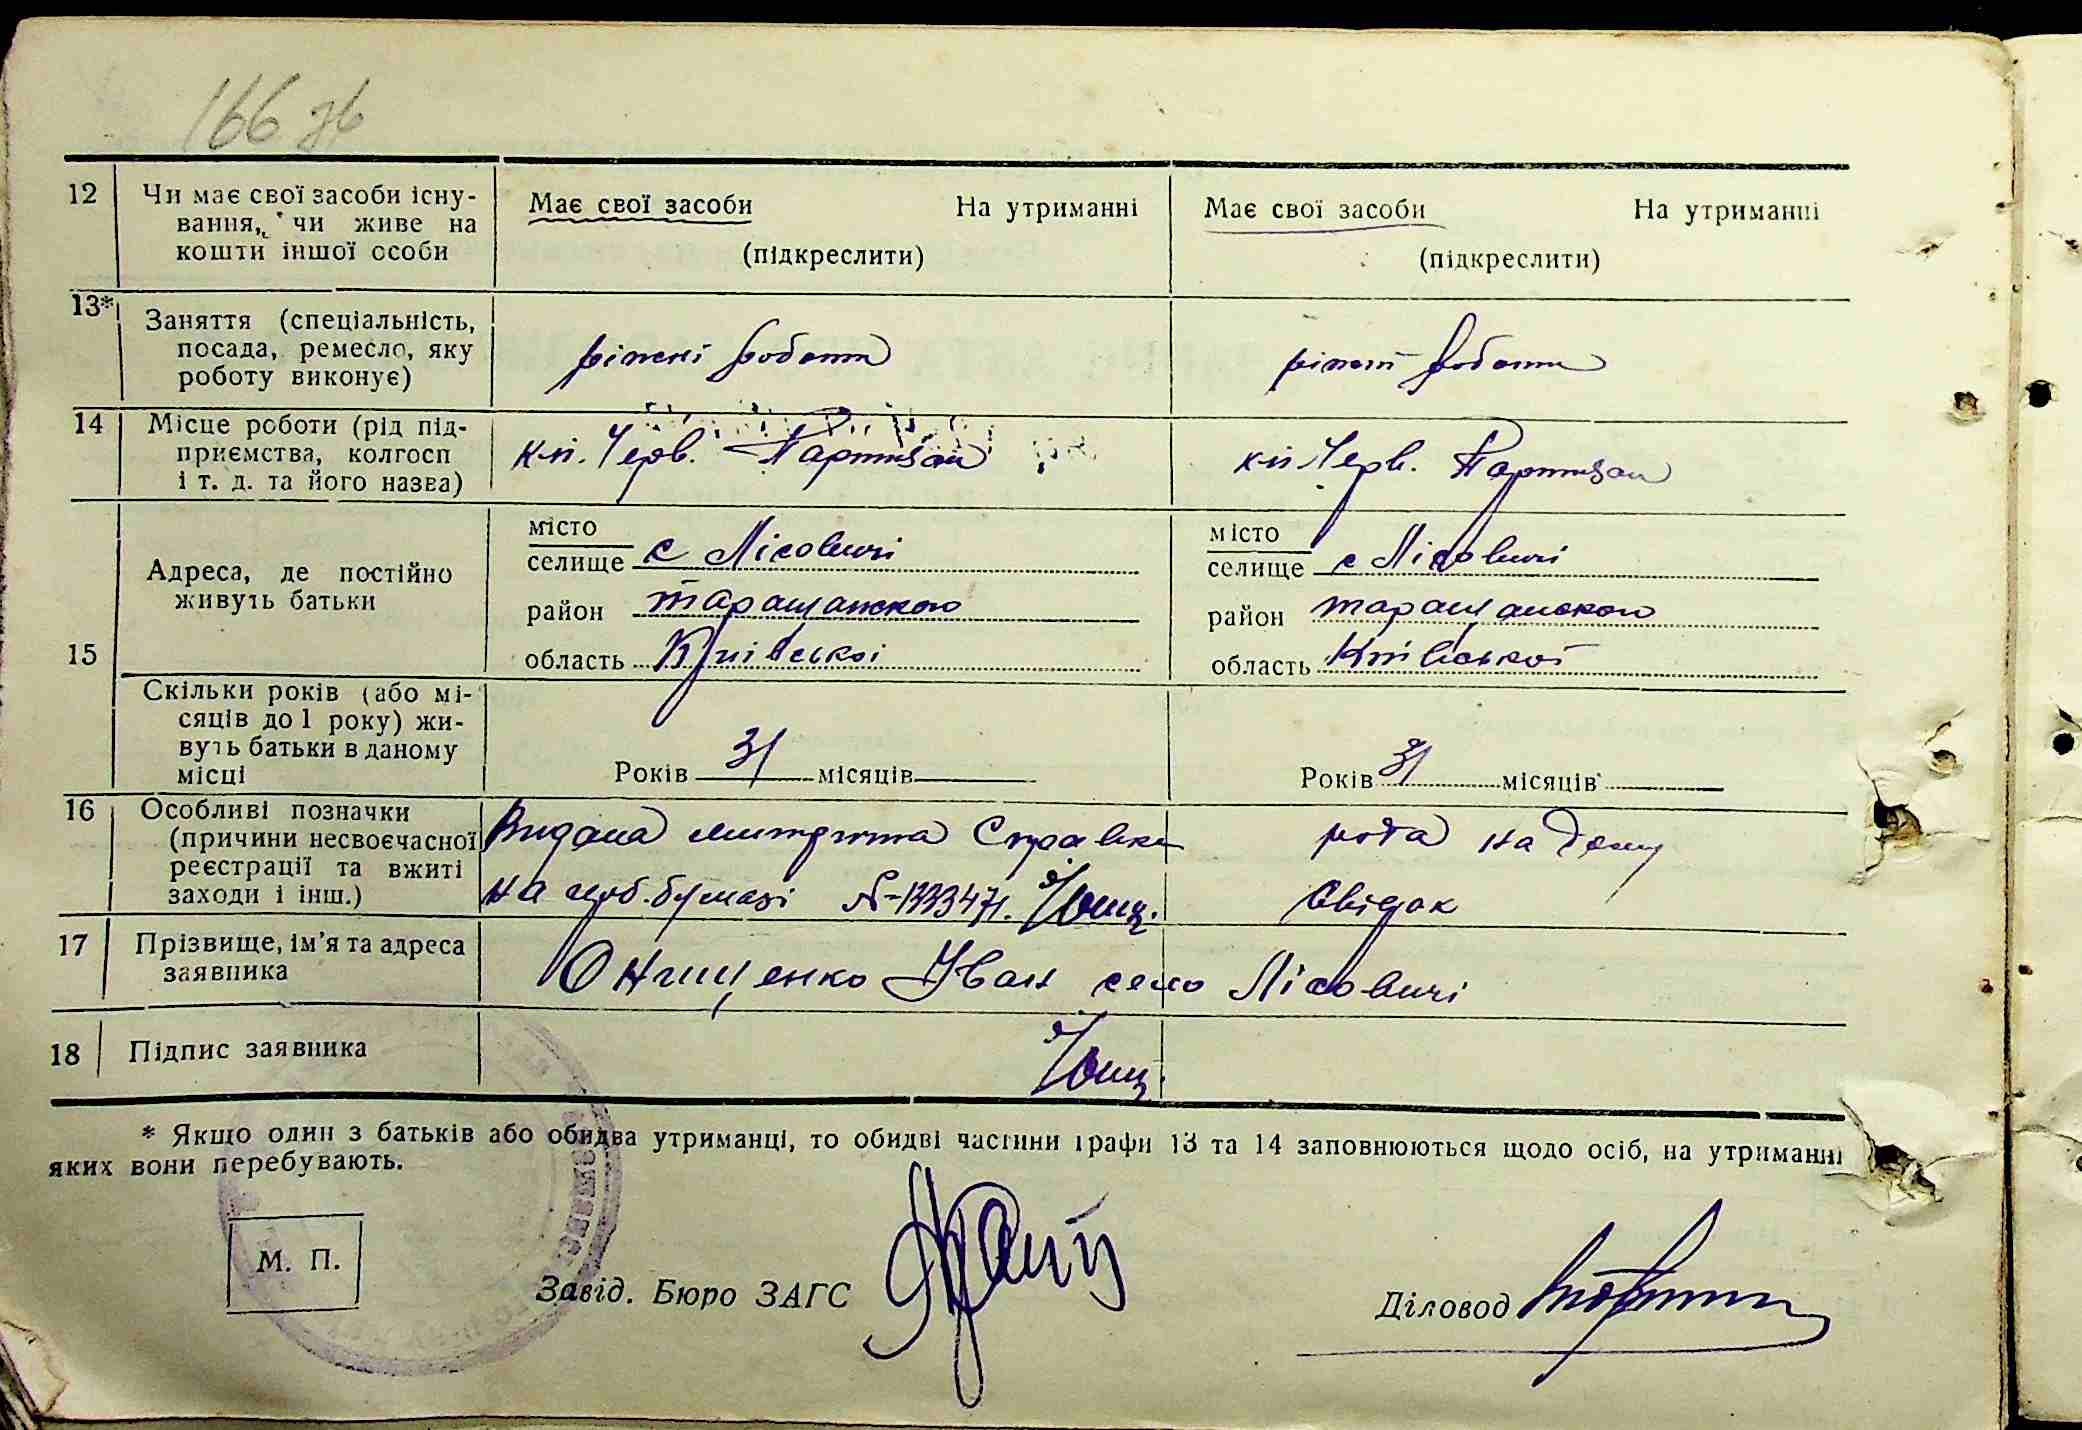 166 зв
12 Чи має свої засоби існу-
вання, чи живе на
кошти іншої особи
Має свої засоби На утриманні
(підкреслити)
Має свої засоби На утриманні
(підкреслити)
13* Заняття (спеціальність,
посада, ремесло, яку
роботу виконує)
ріжні роботи
ріжні роботи
14 Місце роботи (рід під-
приємства, колгосп
і т. д. та його назва)
кп. Черв. Партизан
кп Черв. Партизан
15 Адреса, де постійно
живуть батьки
місто
селище с Лісовичі
район таращанского
область Київської
місто
селище с Лісовичі
район таращанского
область Київської
Скільки років (або мі-
сяців до 1 року) жи-
вуть батьки в даному
місці
Років 31 місяців
Років 31 місяців
16 Особливі позначки
(причини несвоєчасної
реєстрації та вжиті
заходи і інш.)
Видана метрична Справка
на гоб. бумазі №
рода на дому
Свідок
17 Прізвище, ім'я та адреса
заявника
Онищенко Іван село Лісовичі
18 Підпис заявника
* Якщо один з батьків або обидва утриманці, то обидві частини графи 13 та 14 заповнюються щодо осіб, на утриманні
яких вони перебувають.
М. П.
Завід. Бюро ЗАГС
Діловод